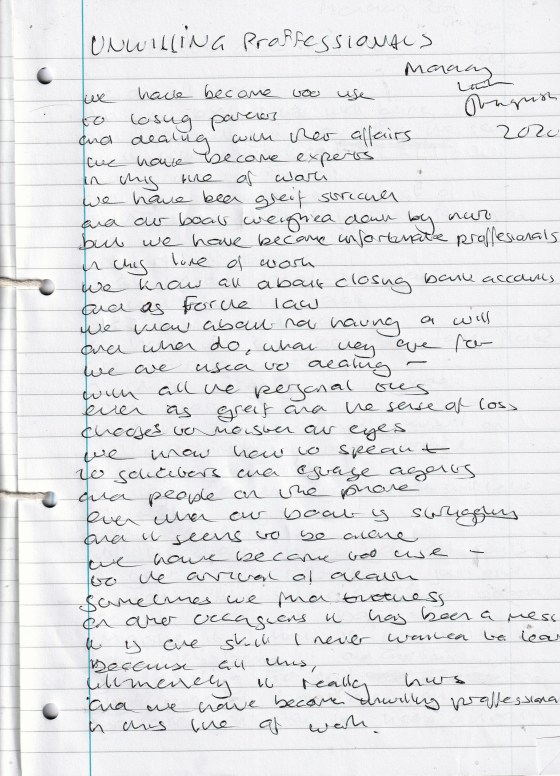 UNWILLING PROFFESSIONALS
Monday
August
2020
we have become too use
to losing parents
and dealing with their affairs
we have become experts
in this line of work
we have been greif stricken
and our boats weighed down by hurt
but we have become unfortunate proffesionals
in this line of work
we know all about closing bank accounts
and as for the law
we know about not having a will
and what do, what they are for
we are used to dealing -
with all the personal
even as greif and the sense of loss
chooses to moisten our eyes
we know how to speak
to solicitors and agents
and people on the phone
even when our boat is struggling
and it seems to be alone
we have become too use -
to the arrival of death
sometimes we find
on other occasions it has been a mess
it is one skill I never wanted to learn
Because all this,
ultimately it really hurts
and we have become unwilling proffessional
in this line of work.